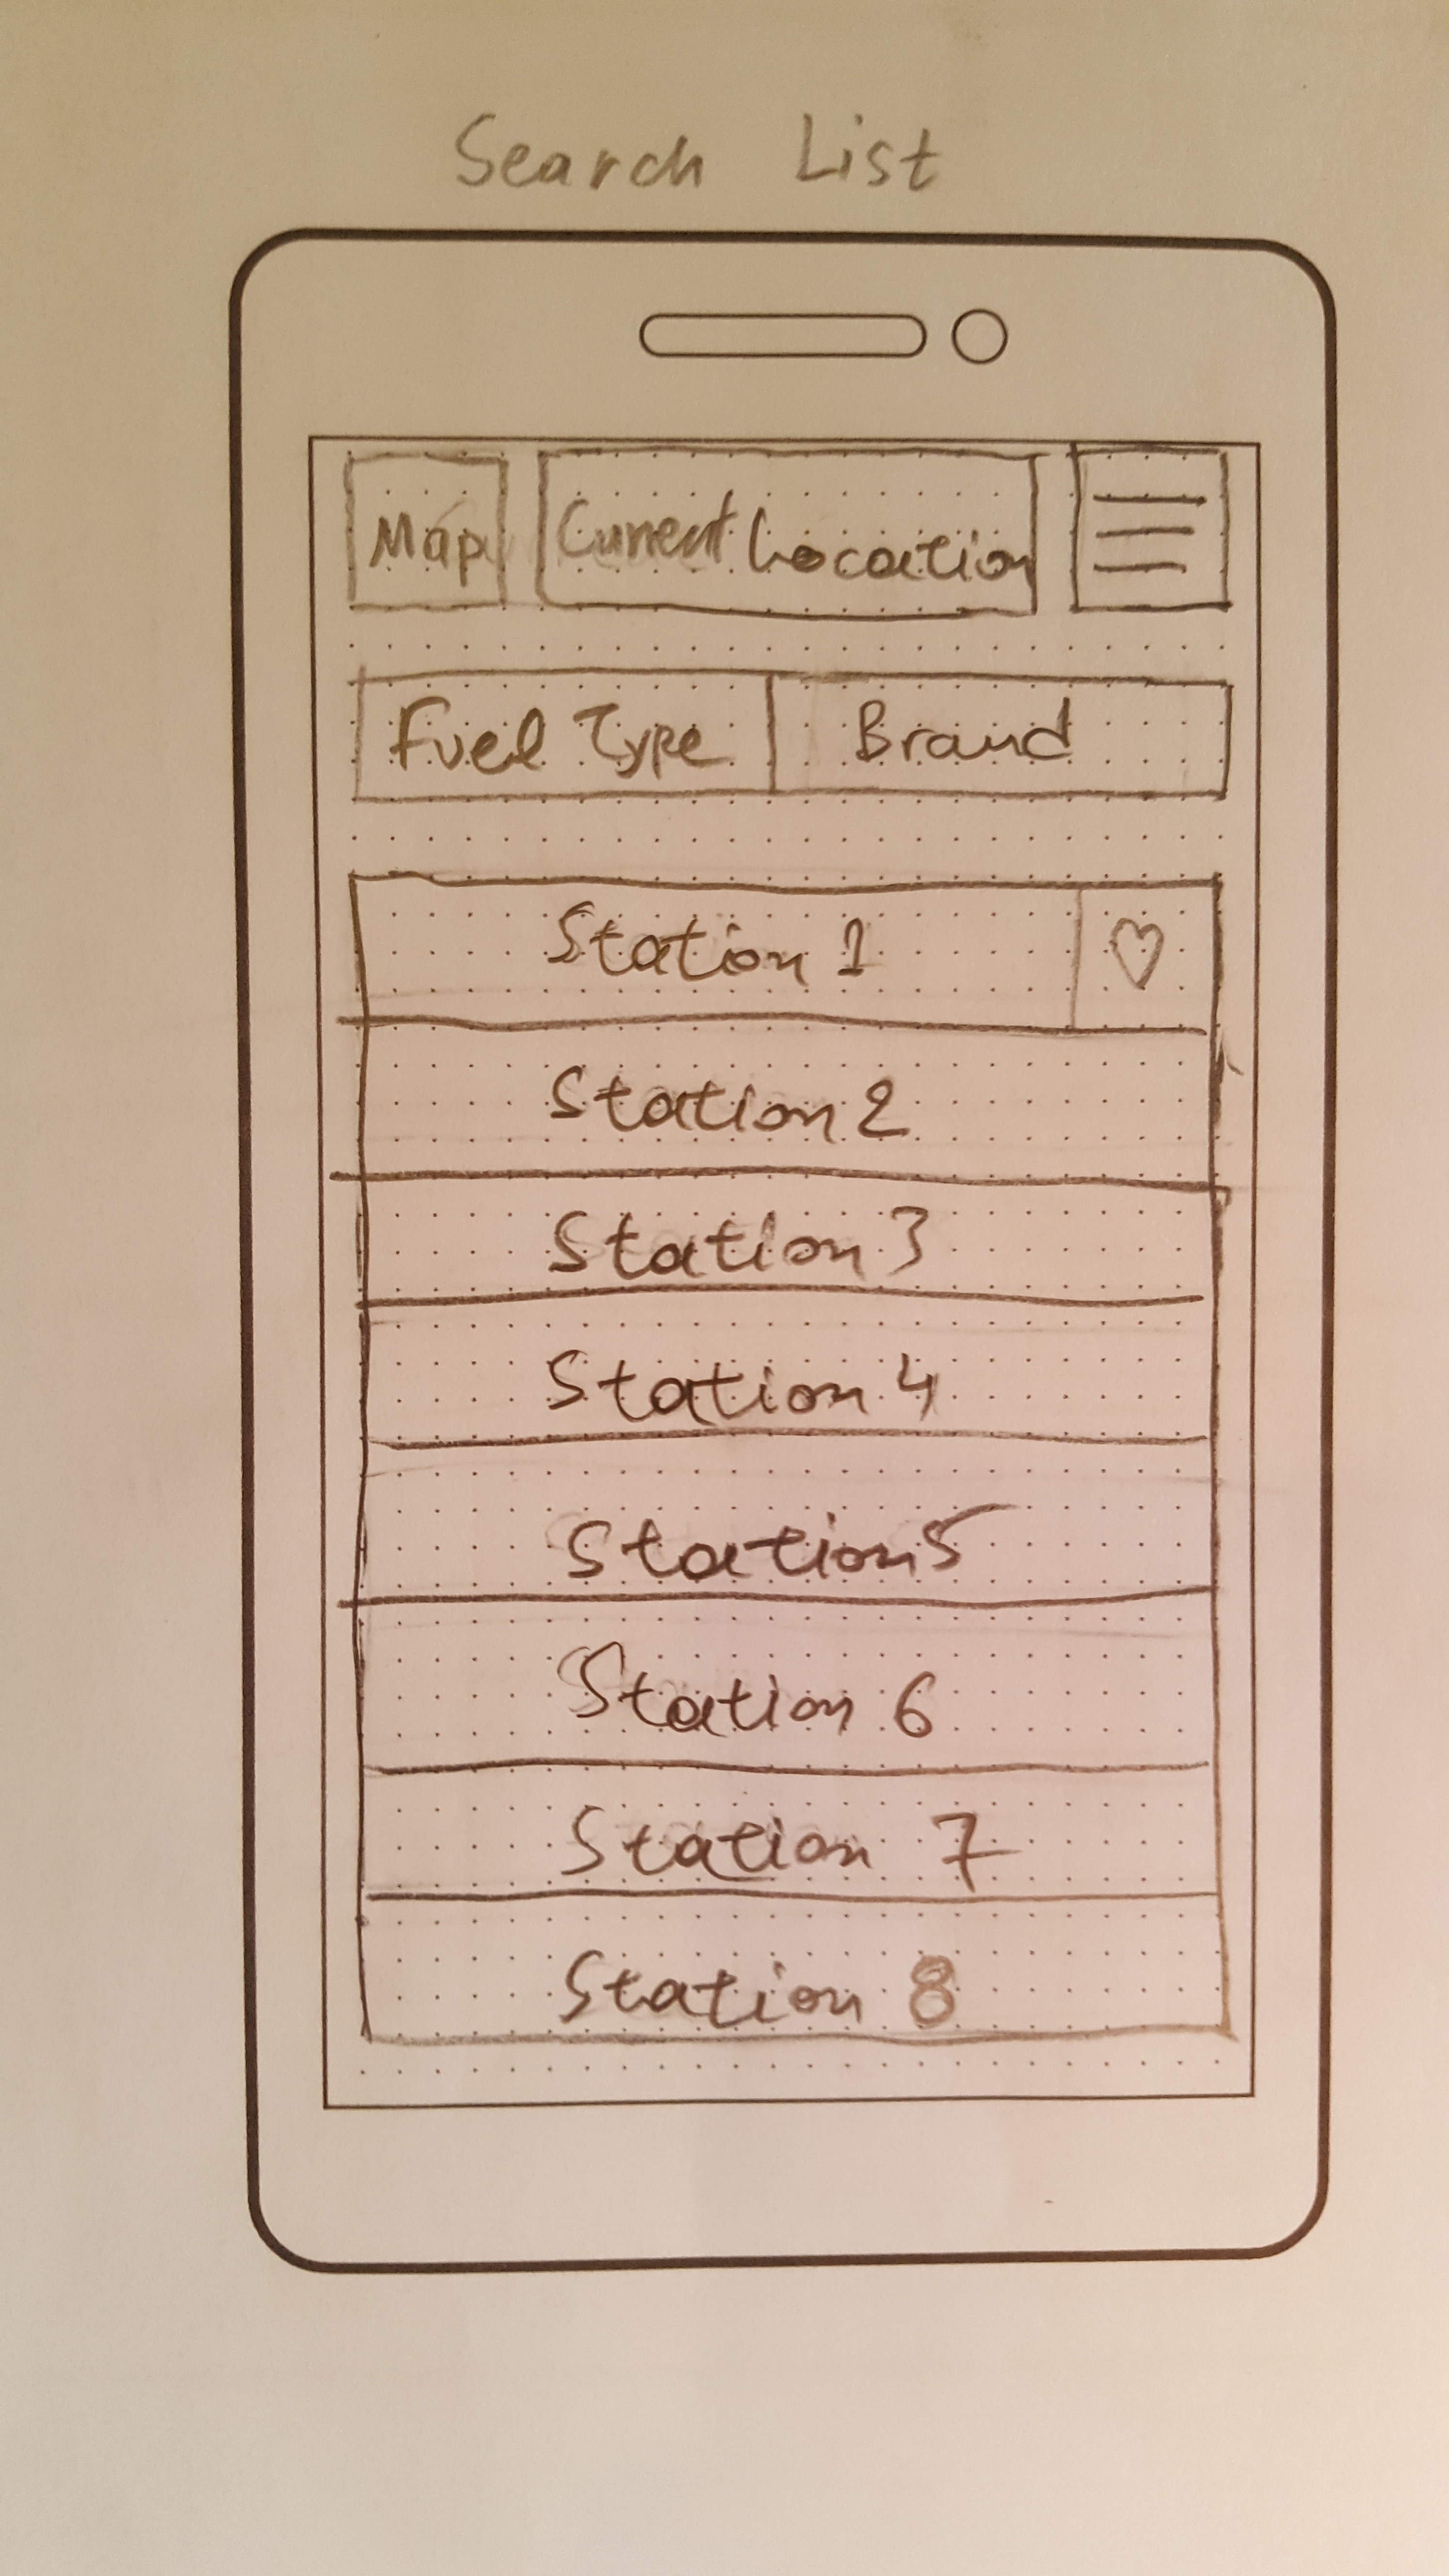 Search List
Map Current Location
Fuel Type Brand
Station 1
Station 2
Station 3
Station 4
Station 5
Station 6
Station 7
Station 8